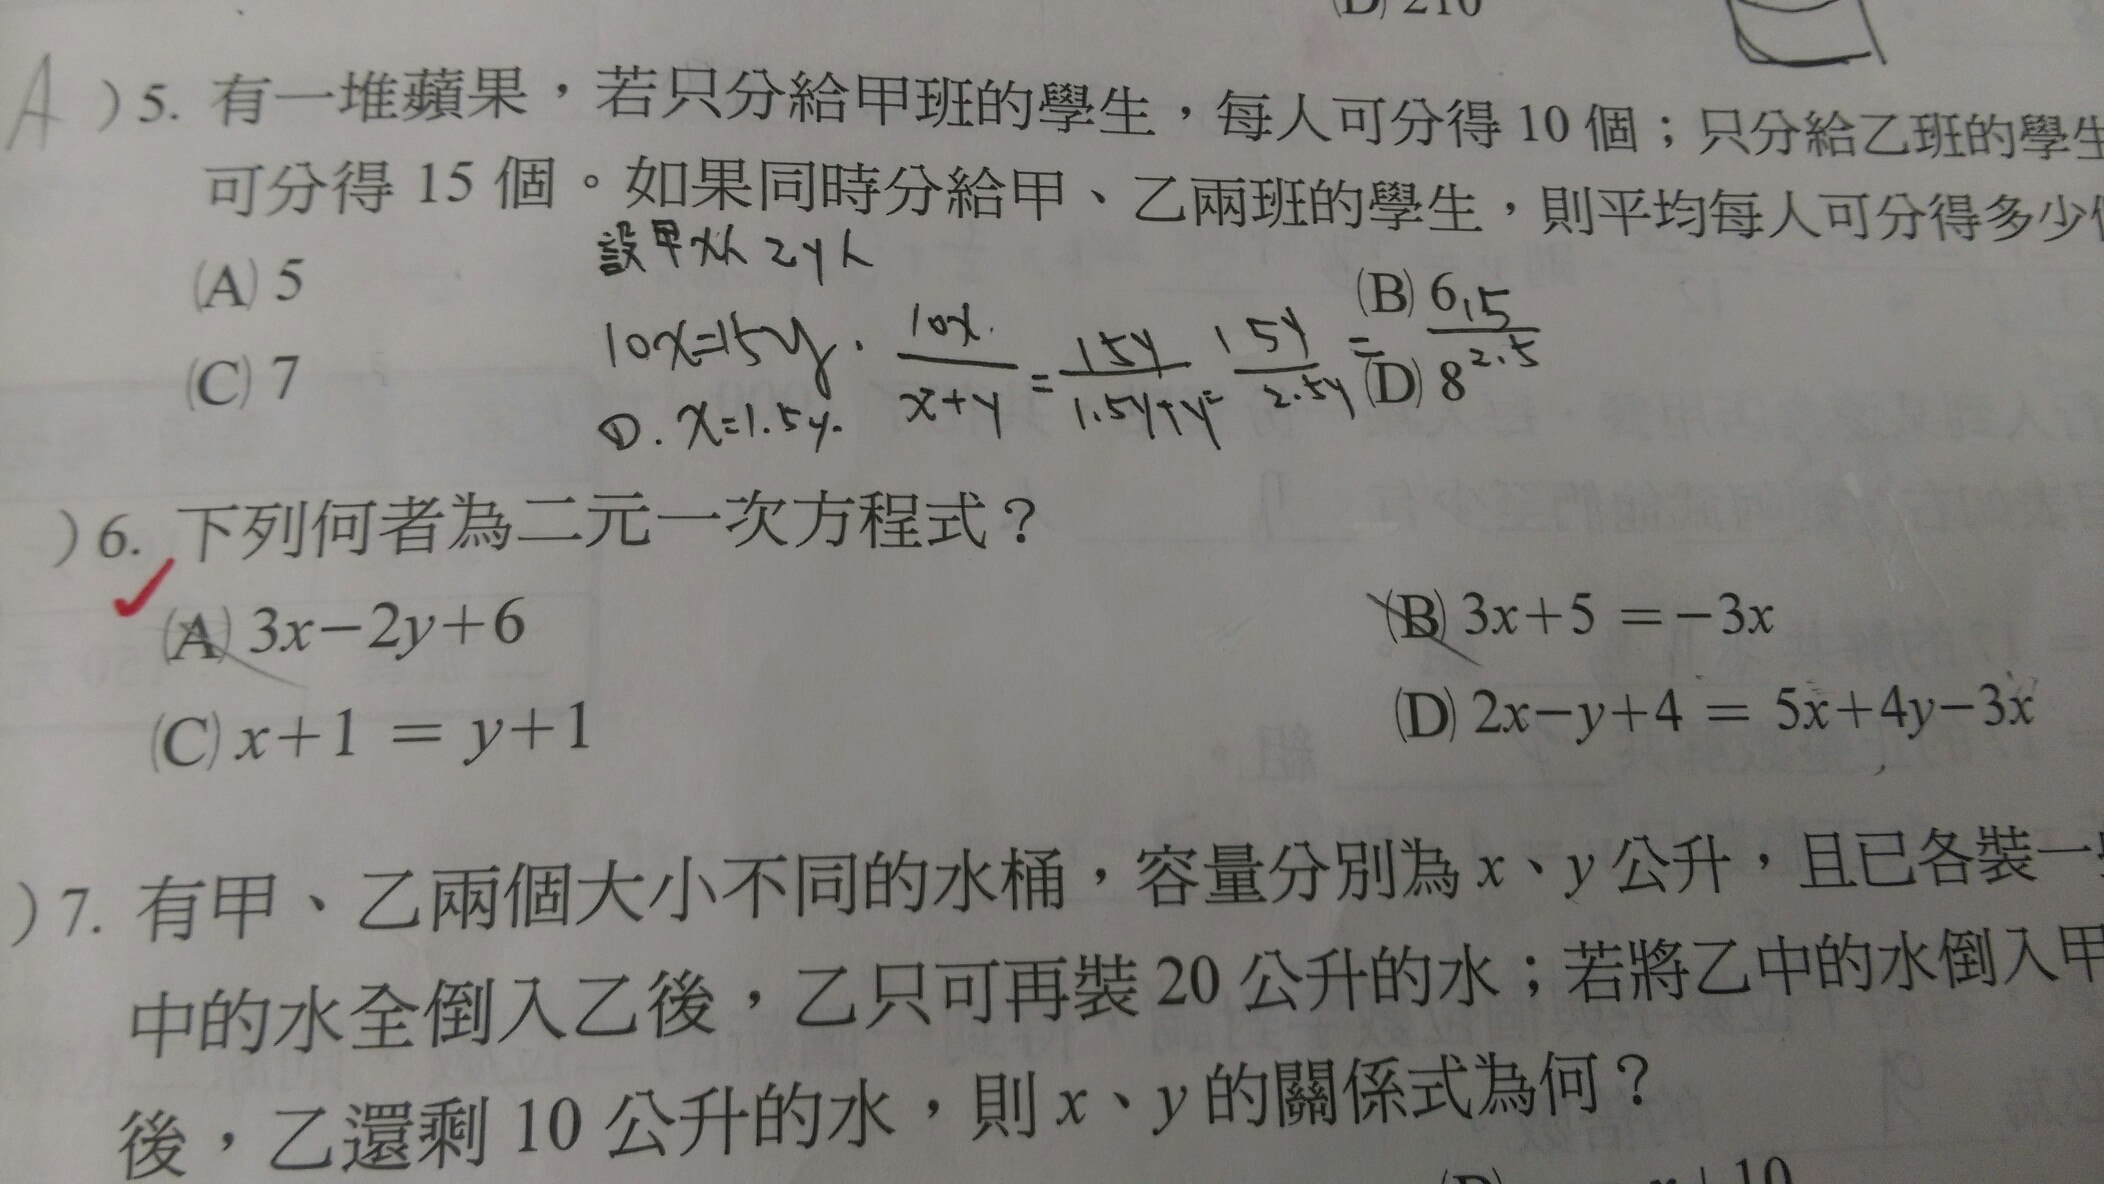 (D) 210
A ) 5. 有一堆蘋果，若只分給甲班的學生，每人可分得 10 個；只分給乙班的學生
可分得 15 個。如果同時分給甲、乙兩班的學生，則平均每人可分得多少
設甲x人 乙y人
(A) 5
(B) 6
10x=15y. 10x/x+y = 15y/1.5y+y = 15y/2.5y = 15/2.5
(C) 7
(D) 8
①. x=1.5y.
) 6. 下列何者為二元一次方程式？
(A) 3x−2y+6
(B) 3x+5 =−3x
(C) x+1 = y+1
(D) 2x−y+4 = 5x+4y−3x
) 7. 有甲、乙兩個大小不同的水桶，容量分別為 x、y 公升，且已各裝一
中的水全倒入乙後，乙只可再裝 20 公升的水；若將乙中的水倒入甲
後，乙還剩 10 公升的水，則 x、y 的關係式為何？